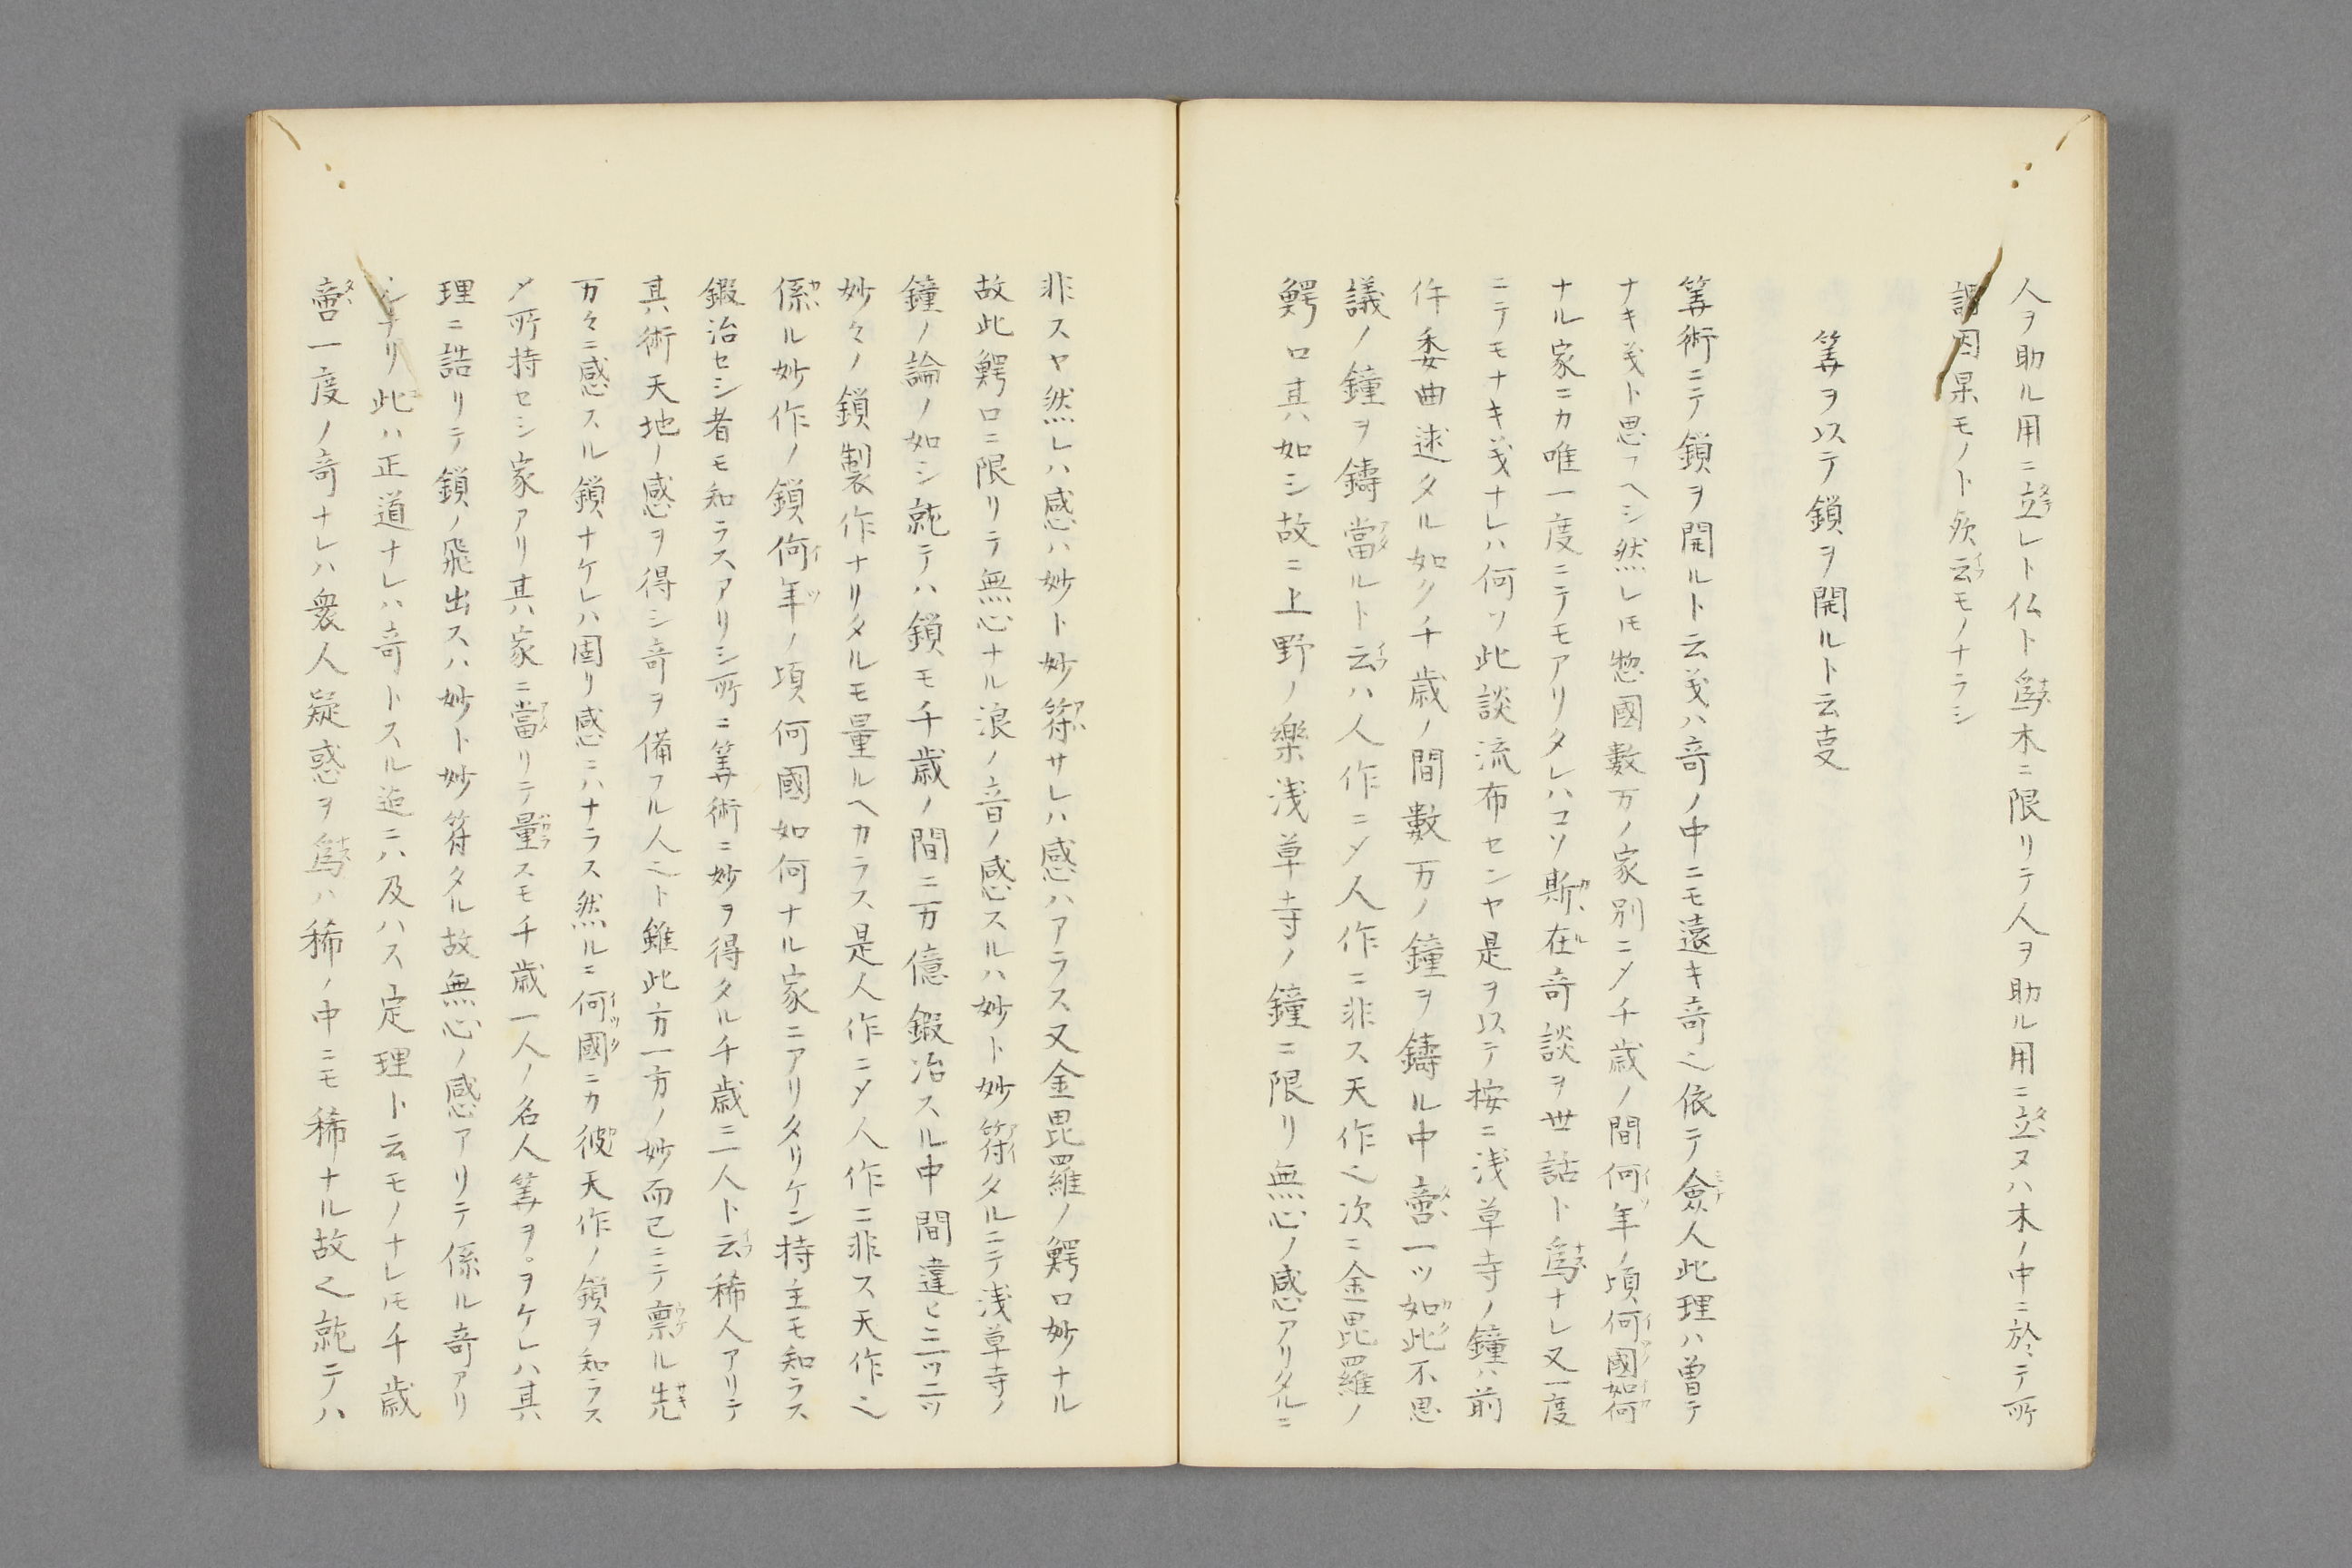 人ヲ助ル用ニ立レト仏ト為木ニ限リテ人ヲ助ル用ニ立ヌハ木ノ中ニ於テ所
謂因果モノト欤云モノナラシ
筭ヲ以テ鎖ヲ開ルト云叓
筭術ニテ鎖ヲ開ルト云义ハ竒ノ中ニモ遠キ竒之依テ僉人此理ハ曽テ
ナキ义ト思フヘシ然レ𪜈惣國數万ノ家別ニメ千歳ノ間何年ノ頃何國如何
ナル家ニカ唯一度ニテモアリタレハコソ斯在竒談ヲ世話ト為ナレ又一度
ニテモナキ义ナレハ何ソ此談流布センヤ是ヲ以テ按ニ浅草寺ノ鐘ハ前
件委曲逑タル如ク千歳ノ間數万ノ鐘ヲ鑄ル中啻一ツ如此不思
議ノ鐘ヲ鑄當ルト云ハ人作ニメ人作ニ非ス天作之次ニ金毘羅ノ
鰐口其ハ如シ故ニ上野ノ樂浅草寺ノ鐘ニ限リ無心ノ感アリタルニ
非スヤ然レハ感ハ妙ト妙符サレハ感ハアラス又金毘羅ノ鰐口妙ナル
故此鰐口ニ限リテ無心ナル浪ノ音ノ感スルハ妙ト妙符タルニテ浅草寺ノ
鐘ノ論ノ如シ就テハ鎖モ千歳ノ間ニ万億鍜冶スル中間違ヒ三ツ二ツ
妙々ノ鎖製作ナリタルモ量ルヘカラス是人作ニメ人作ニ非ス天作之
係ル妙作ノ鎖何年ノ頃何國如何ナル家ニアリタリケン持主モ知ラス
鍜治セシ者モ知ラスアリシ所ニ筭術ニ妙ヲ得タル千歳三人ト云稀人アリテ
其ハ術天地ノ感ヲ得シ竒ヲ備フル人之ト雖此方一方ノ妙而已ニテ禀ル先
万々ニ感スル鎖ナケレハ固リ感ニハナラス然ルニ何國ニカ彼天作ノ鎖ヲ知ラス
メ所持セシ家アリ其ハ家ニ當リテ量スモ千歳一人ノ名人筭ヲ。ヲケレハ其
理ニ誥リテ鎖ノ飛出スハ妙ト妙符タル故無心ノ感アリテ係ル竒アリ
シナリ此ハ正道ナレハ竒トスル迠ニハ及ハス定理ト云モノナレ𪜈千歳
啻一度ノ竒ナレハ衆人疑惑ヲ為ハ稀ノ中ニモ稀ナル故之就テハ